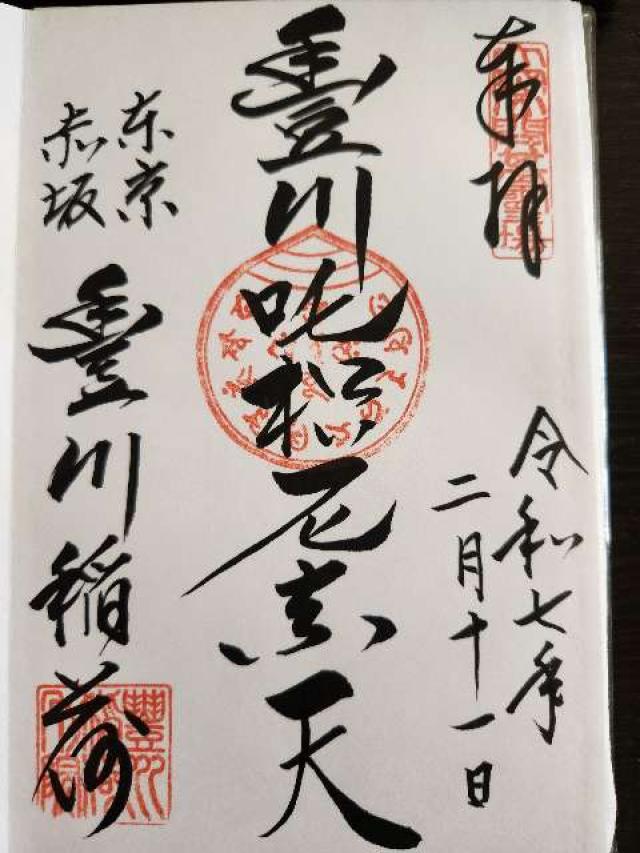 奉拝
令和七年
二月十一日
豊川吒枳尼真天
東京
赤坂
豊川稲荷